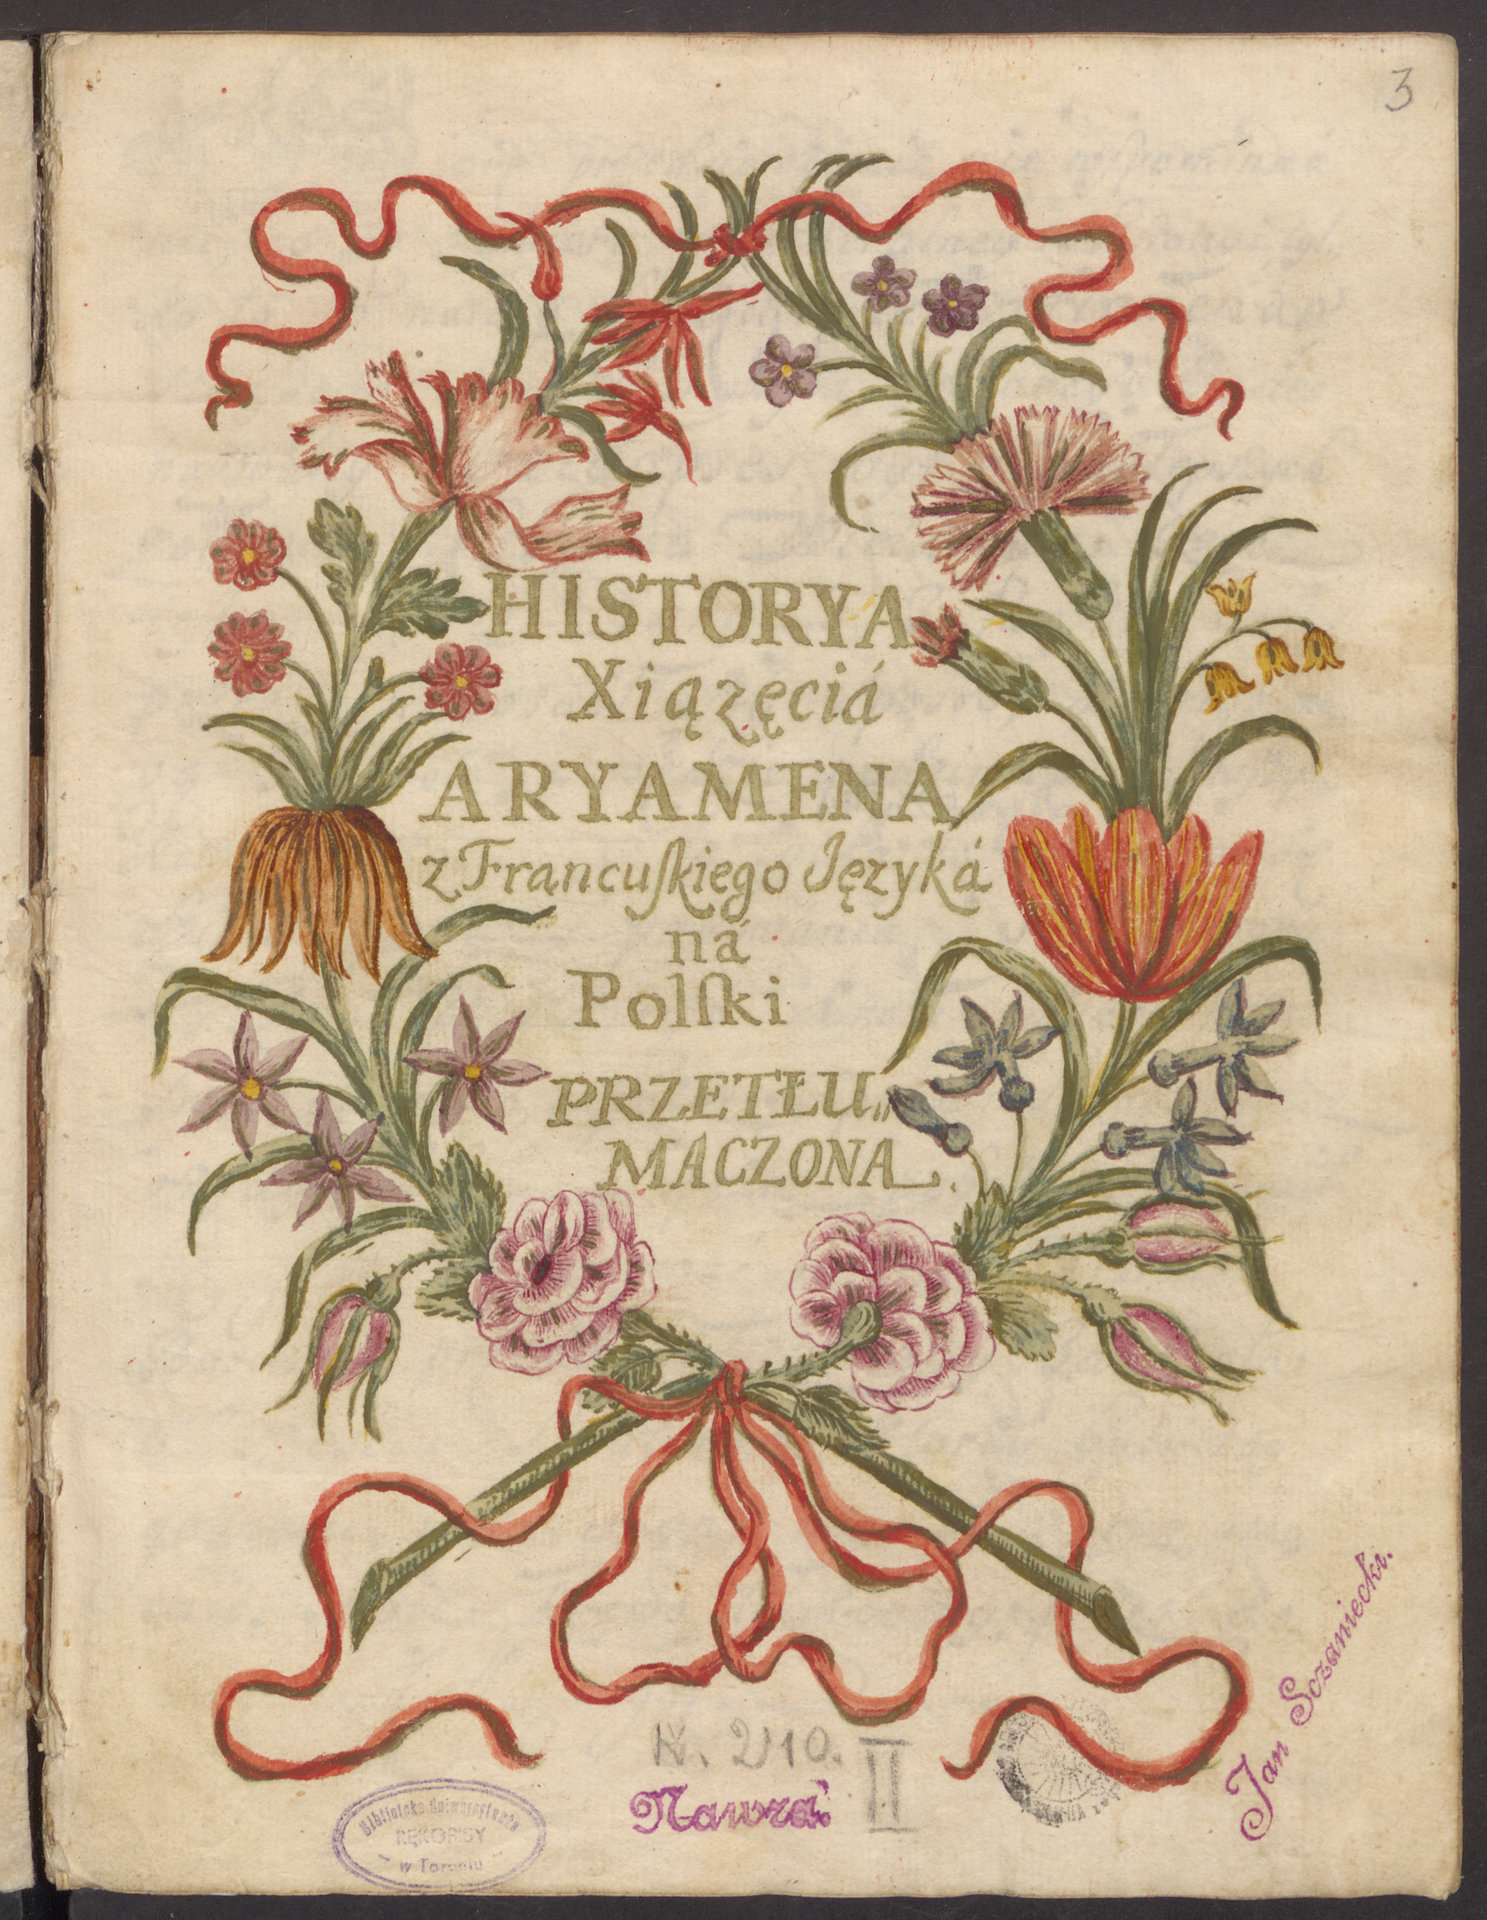 3
HISTORYA
Xiązęciá
ARYAMENA
z Francuſkiego Językà
ná
Polſki
PRZETŁU„
MACZONA.
Jan Sczaniecki.
II
Nawra.
Biblioteka Uniwersytecka
RĘKOPISY
w Toruniu